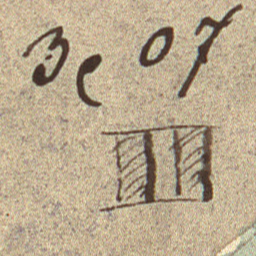 3e 07
II